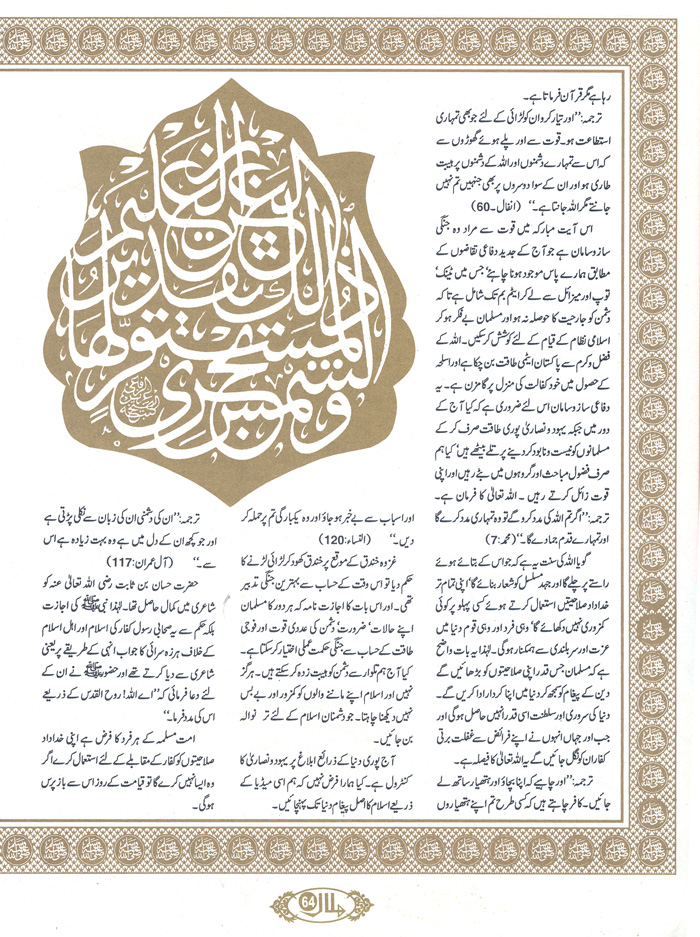 رہا ہے مگر قرآن فرماتا ہے۔
ترجمہ: ’’اور تیار کرو ان کو لڑائی کے لئے جو بھی تمہاری
استطاعت ہو۔ قوت سے اور پلے ہوئے گھوڑوں سے
کہ اس سے تمہارے دشمنوں اور اللہ کے دشمنوں پر ہیبت
طاری ہو اور ان کے سوا دوسروں پر بھی جنہیں تم نہیں
جانتے مگر اللہ جانتا ہے۔‘‘ (انفال۔60)
اس آیت مبارکہ میں قوت سے مراد وہ جنگی
سازو سامان ہے جو آج کے جدید دفاعی تقاضوں کے
مطابق ہمارے پاس موجود ہونا چاہیے‘ جس میں ٹینک‘
توپ اور میزائل سے لے کر ایٹم بم تک شامل ہے تا کہ
دشمن کو جارحیت کا حوصلہ نہ ہو اور مسلمان بے فکر ہو کر
اسلامی نظام کے قیام کے لئے کوشش کر سکیں۔ اللہ کے
فضل و کرم سے پاکستان ایٹمی طاقت بن چکا ہے اور اسلحہ
کے حصول میں خود کفالت کی منزل پر گامزن ہے۔ یہ
دفاعی سازو سامان اس لئے ضروری ہے کہ کیا آج کے
دور میں جبکہ یہود و نصاریٰ پوری طاقت صرف کر کے
مسلمانوں کو نیست و نابود کر دینے پر تلے بیٹھے ہیں‘ کیا ہم
صرف فضول مباحث اور گروہوں میں بٹے رہیں اور اپنی
قوت زائل کرتے رہیں ۔ اللہ تعالیٰ کا فرمان ہے۔
ترجمہ: ’’اگر تم اللہ کی مدد کرو گے تو وہ تمہاری مدد کرے گا
اور تمہارے قدم جما دے گا۔‘‘ (محمد: 7)
گویا اللہ کی سنت یہ ہے کہ جو اس کے بتائے ہوئے
راستے پر چلے گا اور جہد مسلسل کو شعار بنائے گا‘ اپنی تمام تر
خداداد صلاحیتیں استعمال کرتے ہوئے کسی پہلو پر کوئی
کمزوری نہیں دکھائے گا‘ وہی فرد اور وہی قوم دنیا میں
عزت اور سر بلندی سے ہمکنار ہو گی۔ لہٰذا یہ بات واضح
ہے کہ مسلمان جس قدر اپنی صلاحیتوں کو بڑھائیں گے
دین کے پیغام کو سمجھ کر دنیا میں اپنا کردار ادا کریں گے۔
دنیا کی سروری اور سلطنت اسی قدر انہیں حاصل ہو گی اور
جب اور جہاں انہوں نے اپنے فرائض سے غفلت برتی
کفار ان کو نگل جائیں گے یہ اللہ تعالیٰ کا فیصلہ ہے۔
ترجمہ: ’’اور چاہیے کہ اپنا بچاؤ اور ہتھیار ساتھ لے
جائیں۔ کافر چاہتے ہیں کہ کسی طرح تم اپنے ہتھیاروں
اور اسباب سے بے خبر ہو جاؤ اور وہ یکبارگی تم پر حملہ کر
دیں۔‘‘ (النساء: 120)
غزوہ خندق کے موقع پر خندق کھود کر لڑائی لڑنے کا
حکم دیا تو اس وقت کے حساب سے بہترین جنگی تدبیر
تھی۔ اور اس بات کا اجازت نامہ کہ ہر دور کا مسلمان
اپنے حالات‘ ضرورت‘ دشمن کی عددی قوت اور فوجی
طاقت کے حساب سے جنگی حکمت عملی اختیار کر سکتا ہے۔
کیا آج ہم تلوار سے دشمن کو ہیبت زدہ کر سکتے ہیں۔ ہرگز
نہیں اور اسلام اپنے ماننے والوں کو کمزور اور بے بس
نہیں دیکھنا چاہتا۔ جو دشمنان اسلام کے لئے تر نوالہ
بن جائیں۔
آج پوری دنیا کے ذرائع ابلاغ پر یہود و نصاریٰ کا
کنٹرول ہے۔ کیا ہمارا فرض نہیں کہ ہم اسی میڈیا کے
ذریعے اسلام کا اصل پیغام دنیا تک پہنچائیں۔
ترجمہ: ’’ان کی دشمنی ان کی زبان سے نکلی پڑتی ہے
اور جو کچھ ان کے دل میں ہے وہ بہت زیادہ ہے اس
سے۔‘‘ (آل عمران: 117)
حضرت حسان بن ثابت رضی اللہ تعالیٰ عنہ کو
شاعری میں کمال حاصل تھا۔ لہٰذا نبیﷺ کی اجازت
بلکہ حکم سے یہ صحابی رسول کفار کی اسلام اور اہل اسلام
کے خلاف ہرزہ سرائی کا جواب انہی کے طریقے پر یعنی
شاعری سے دیا کرتے تھے اور حضورﷺ نے ان کے
لئے دعا فرمائی کہ ’’اے اللہ! روح القدس کے ذریعے
اس کی مدد فرما۔‘‘
امت مسلمہ کے ہر فرد کا فرض ہے اپنی خداداد
صلاحیتوں کو کفار کے مقابلے کے لئے استعمال کرے اگر
وہ ایسا نہیں کرے گا تو قیامت کے روز اس سے باز پرس
ہو گی۔
والشمس تجری
لمستقر لها
ذلك تقدير
العزيز العليم
ہلال 64